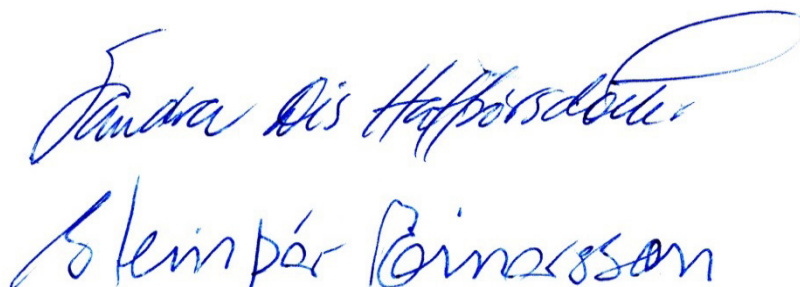 Sandra Dís Hafþórsdóttir
Steinþór Einarsson